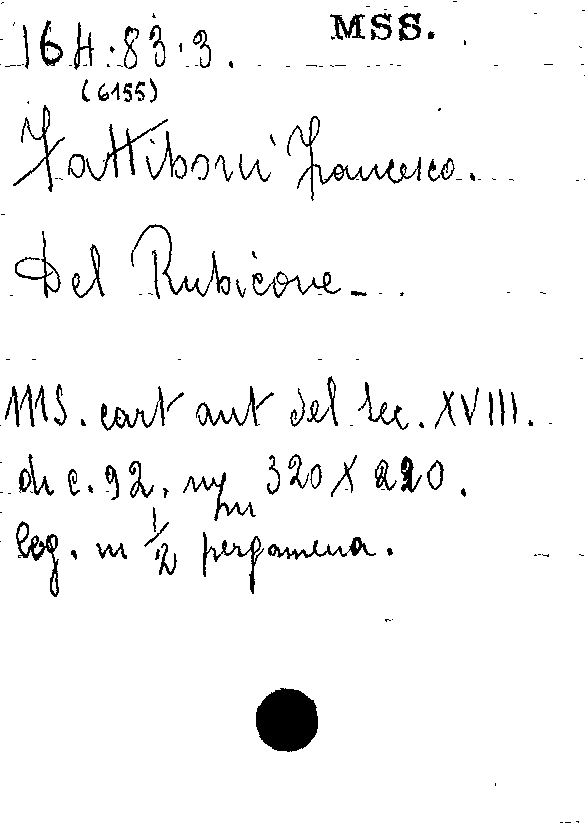 MSS.
164.83.3.
(6155)
Fattiboni Francesco.
Del Rubicone.
MS. cart aut del sec. XVIII.
di c. 92. mm 320 X 220.
leg. in 1/2 pergamena.